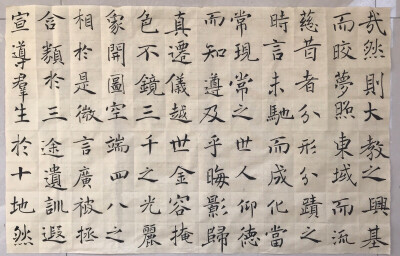 哉然則大教之興基
而皎夢照東域而流
慈昔者分形分蹟之
時言未馳而成化當
常現常之世人仰德
而知遵及乎晦影歸
真遷儀越世金容掩
色不鏡三千之光麗
象開圖空端四八之
相於是微言廣被拯
含類於三途遺訓遐
宣導羣生於十地然